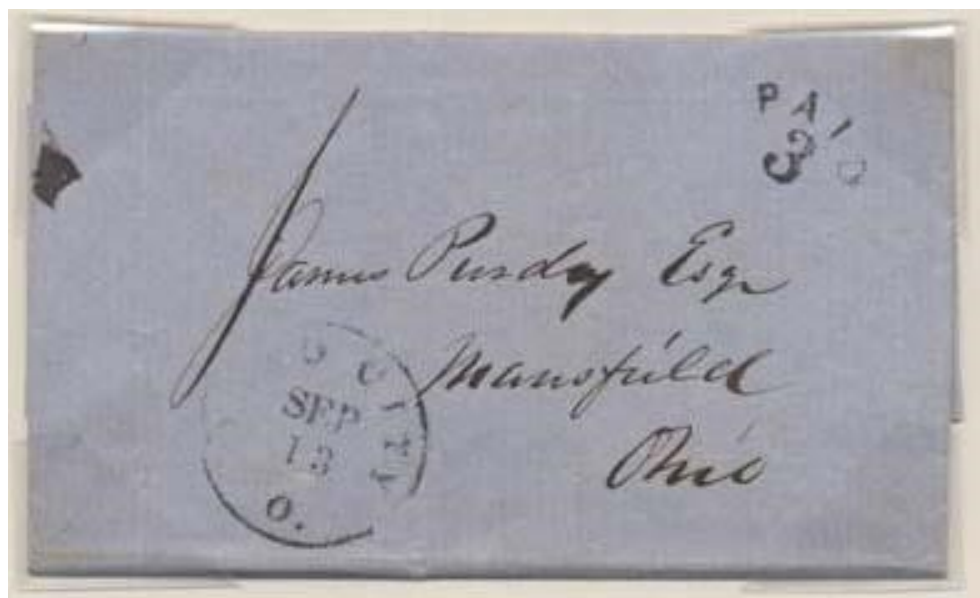 PAID
3
James Purdy Esqr
Mansfield
Ohio
SEP
13
O.